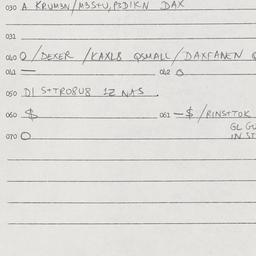 030 A KRUM3N/M3STU,P3DIKN DAX
031
040 O/DEXER /KAXL8 QSMALL/DAXFANEN
041 — 042 O
050 DI S+TRO8U8 1Z NAS.
060 $ 061 —$/RINSTTOK
GL GU
IN ST
070 O